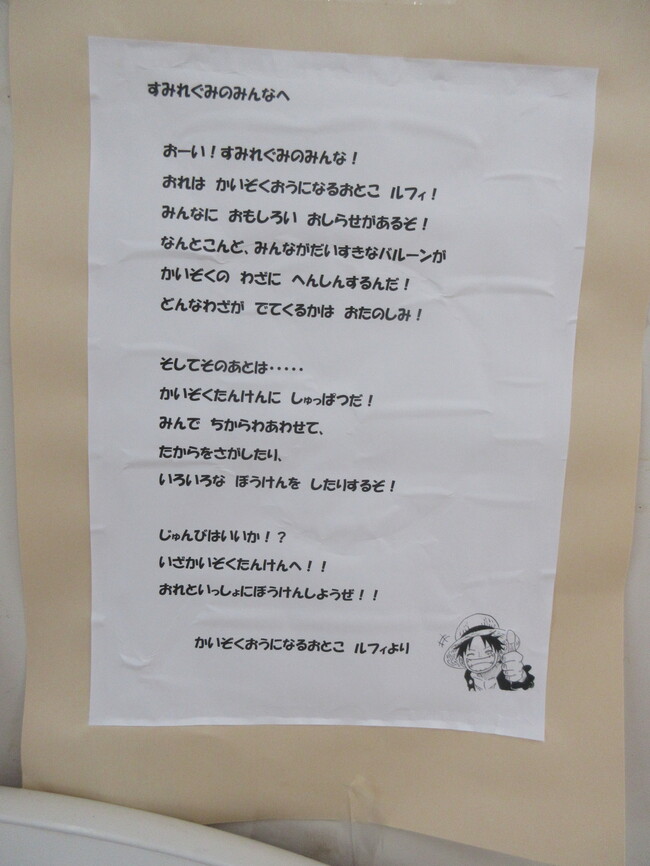 すみれぐみのみんなへ
おーい！すみれぐみのみんな！
おれは かいぞくおうになるおとこ ルフィ！
みんなに おもしろい おしらせがあるぞ！
なんとこんど、みんながだいすきなバルーンが
かいぞくの わざに へんしんするんだ！
どんなわざが でてくるかは おたのしみ！
そしてそのあとは・・・・・
かいぞくたんけんに しゅっぱつだ！
みんで ちからわあわせて、
たからをさがしたり、
いろいろな ぼうけんを したりするぞ！
じゅんびはいいか！？
いざかいぞくたんけんへ！！
おれといっしょにぼうけんしようぜ！！
かいぞくおうになるおとこ ルフィより